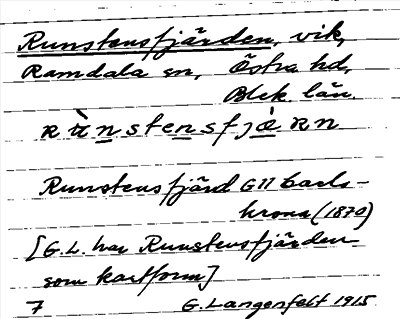 Runstensfjärden, vik,
Ramdala sn, Östra hd,
Blek. län.
rùnstensfjà̱rn
Runstensfjärd GII Carls-
krona (1870)
[G.L. har Runstensfjärden
som kartform]
7 G. Langenfelt 1915